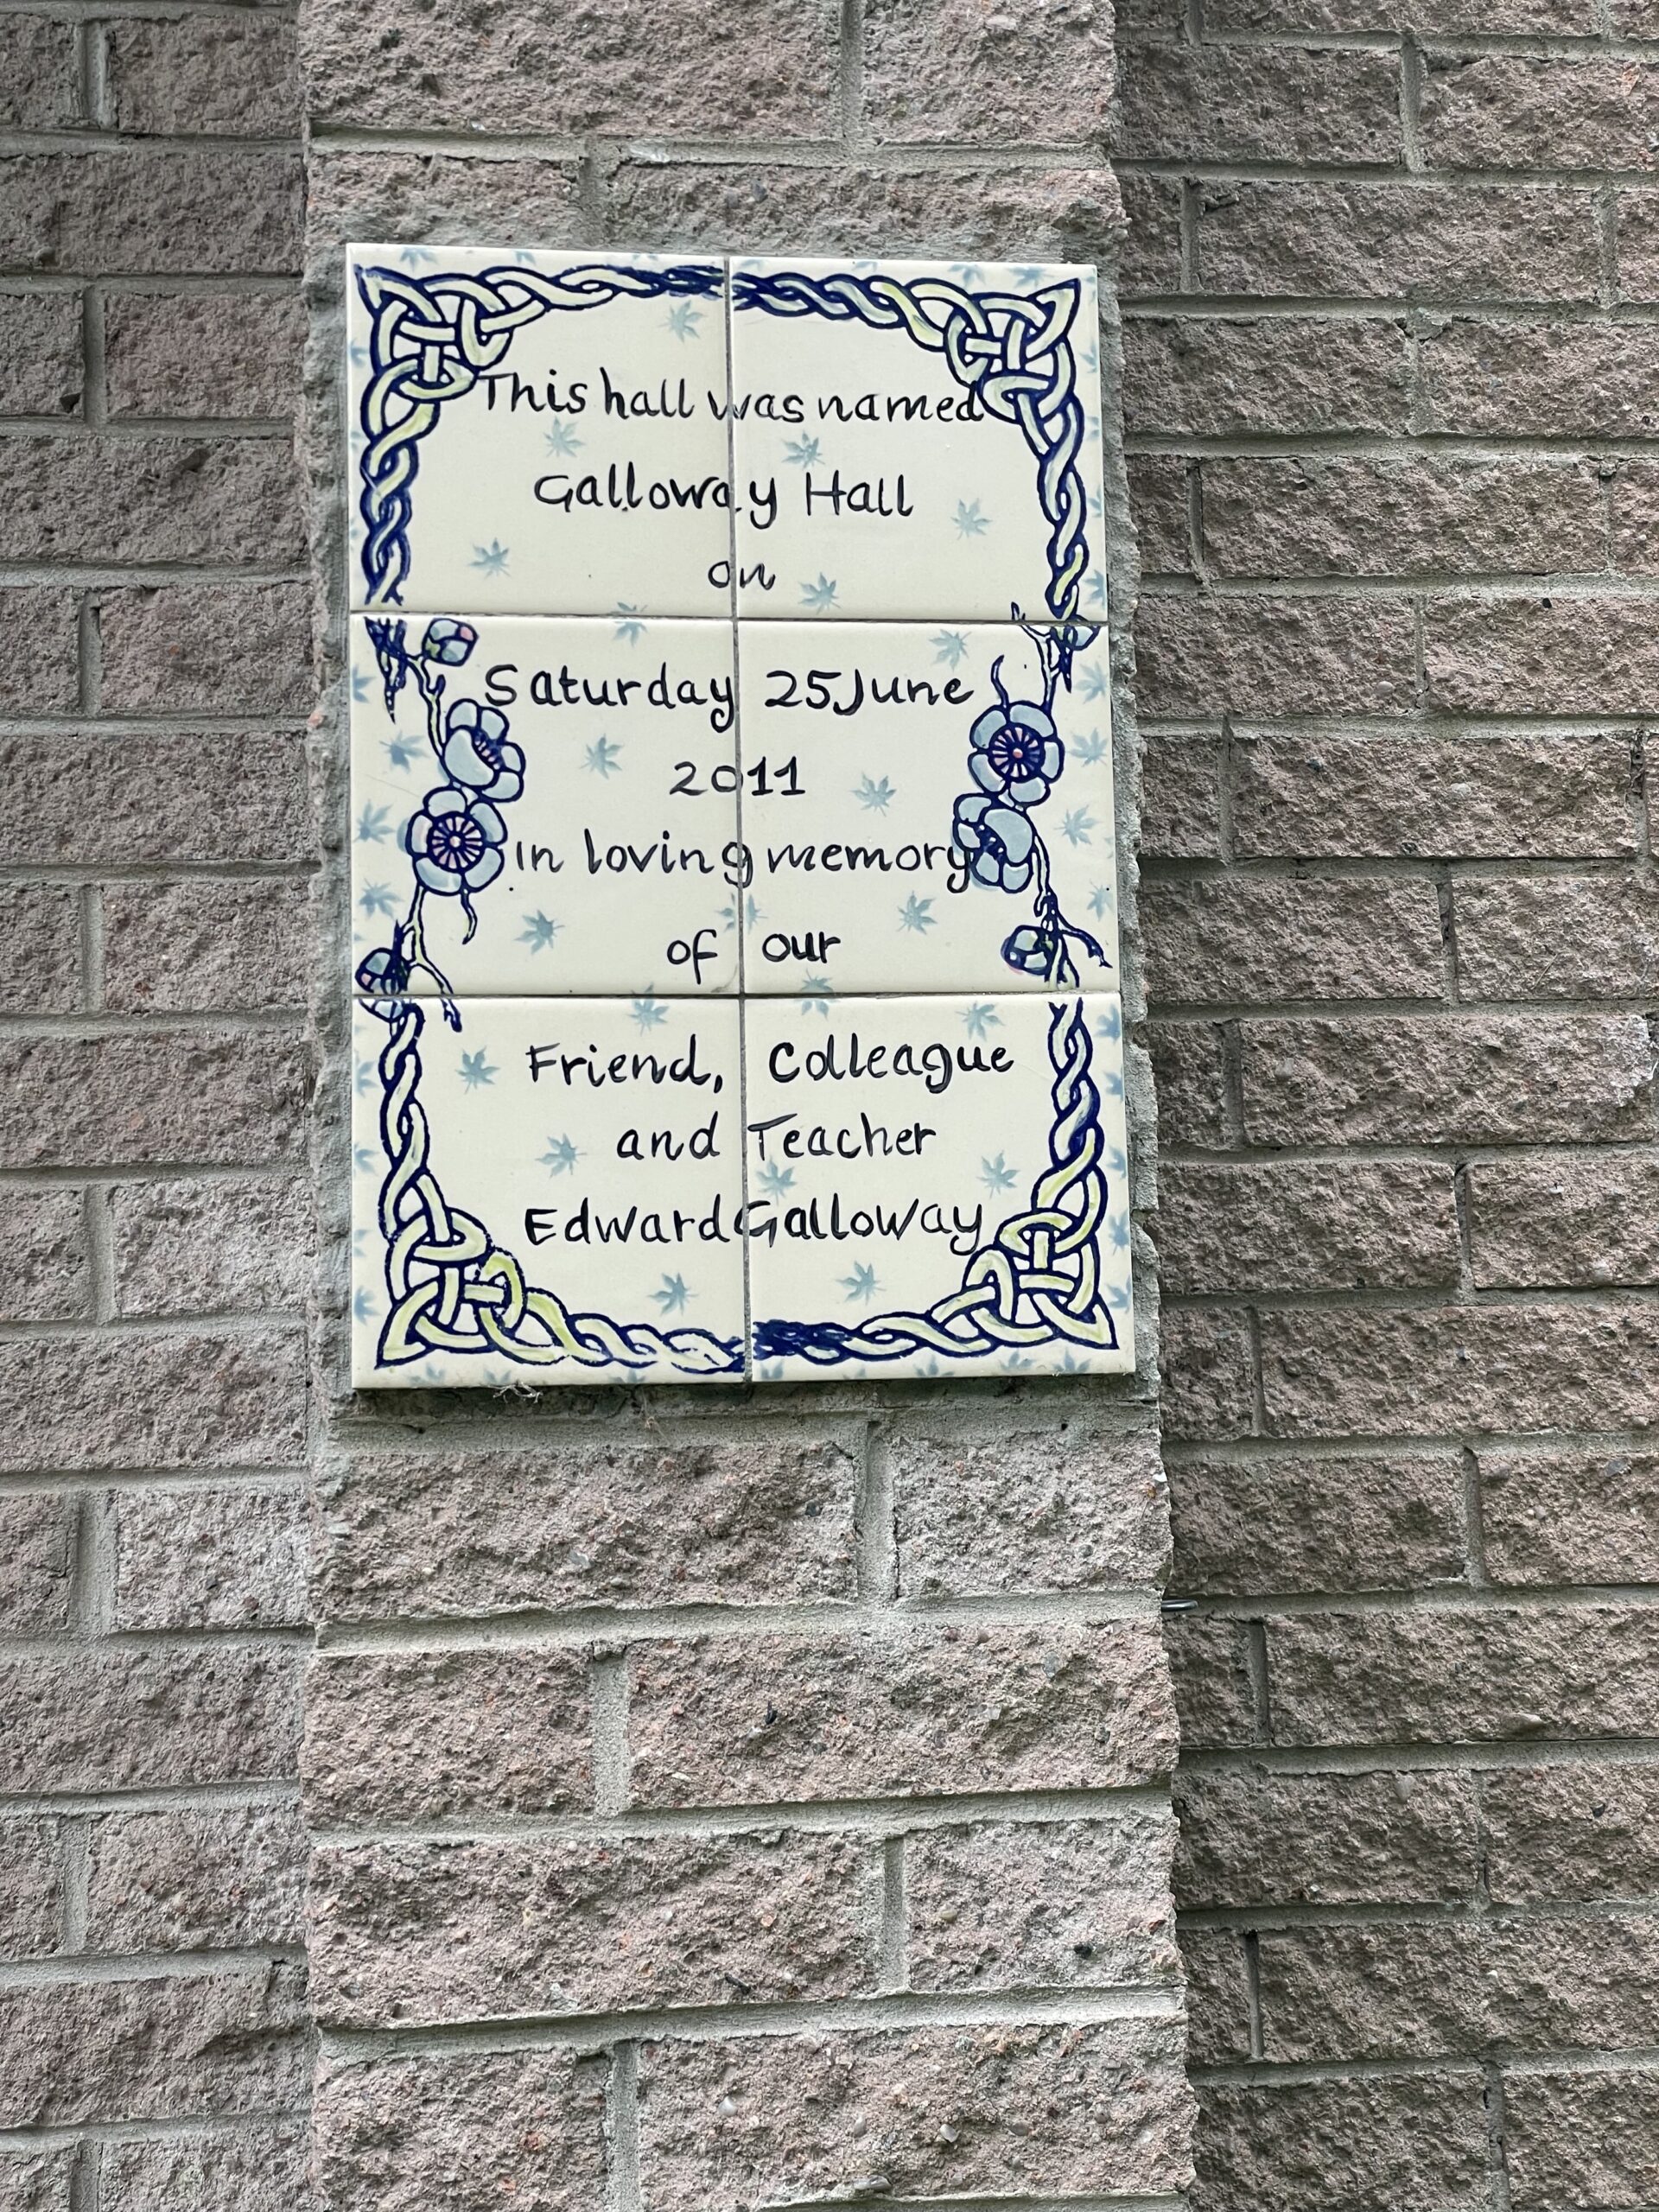 This hall was named
Galloway Hall
on
Saturday 25 June
2011
In loving memory
of our
Friend, Colleague
and Teacher
Edward Galloway